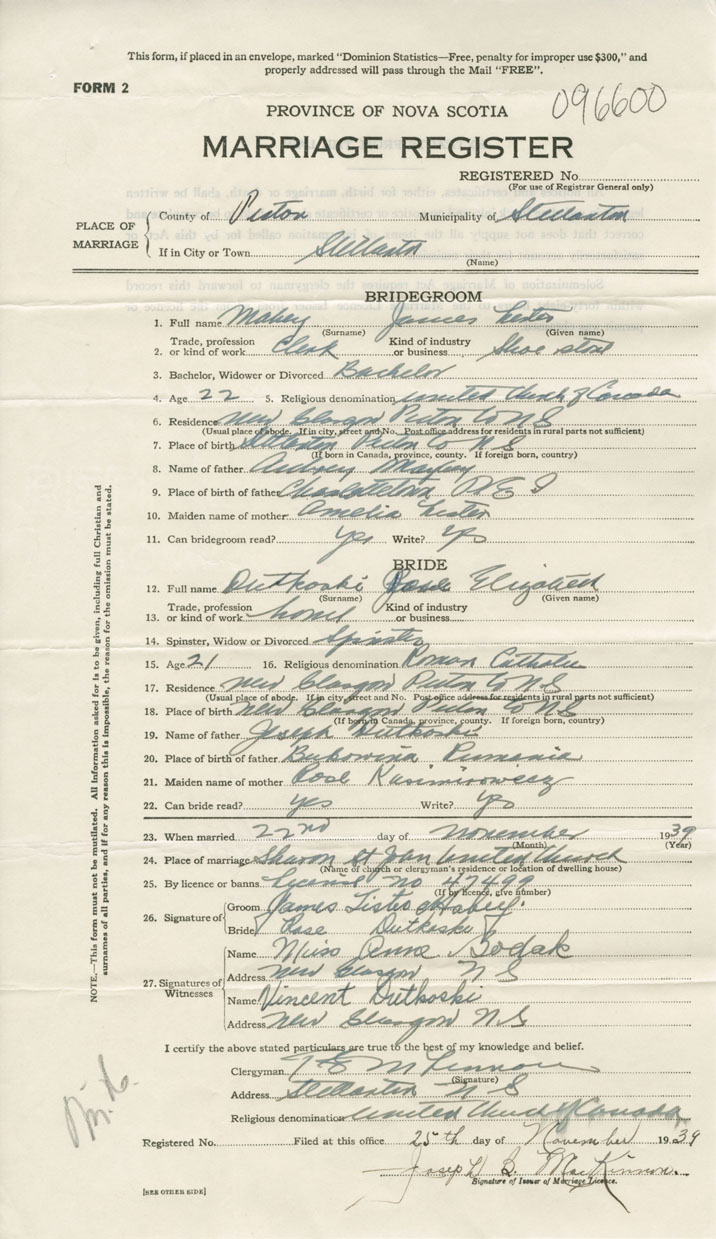 This form, if placed in an envelope, marked "Dominion Statistics—Free, penalty for improper use $300," and
properly addressed will pass through the Mail "FREE".
FORM 2
096600
PROVINCE OF NOVA SCOTIA
MARRIAGE REGISTER
REGISTERED No.
(For use of Registrar General only)
PLACE OF MARRIAGE
County of Pictou Municipality of Stellarton
If in City or Town Stellarton
(Name)
BRIDEGROOM
1. Full name Mabey James Lester
(Surname) (Given name)
2. Trade, profession or kind of work Clerk Kind of industry or business Shoe store
3. Bachelor, Widower or Divorced Bachelor
4. Age 22 5. Religious denomination United Church of Canada
6. Residence New Glasgow Pictou Co NS
(Usual place of abode. If in city, street and No. Post office address for residents in rural parts not sufficient)
7. Place of birth Stellarton Pictou Co N S
(If born in Canada, province, county. If foreign born, country)
8. Name of father Aubrey Mabey
9. Place of birth of father Charlottetown P E I
10. Maiden name of mother Amelia Lester
11. Can bridegroom read? yes Write? yes
BRIDE
12. Full name Dutkoski Rose Elizabeth
(Surname) (Given name)
13. Trade, profession or kind of work home Kind of industry or business
14. Spinster, Widow or Divorced Spinster
15. Age 21 16. Religious denomination Roman Catholic
17. Residence New Glasgow Pictou Co NS
(Usual place of abode. If in city, street and No. Post office address for residents in rural parts not sufficient)
18. Place of birth New Glasgow Pictou Co NS
(If born in Canada, province, county. If foreign born, country)
19. Name of father Joseph Dutkoski
20. Place of birth of father Bukowina Rumania
21. Maiden name of mother Rose Kasimiroweez
22. Can bride read? yes Write? yes
23. When married 22nd day of November 1939
(Month) (Year)
24. Place of marriage Sharon St John United Church
(Name of church or clergyman's residence or location of dwelling house)
25. By licence or banns License no 47499
(If by licence, give number)
26. Signature of
Groom James Lister Mabey
Bride Rose Dutkoski
27. Signatures of Witnesses
Name Miss Anne Bodak
Address New Glasgow N S
Name Vincent Dutkoski
Address New Glasgow N.S
I certify the above stated particulars are true to the best of my knowledge and belief.
Clergyman
(Signature)
Address Stellarton N S
Religious denomination United Church of Canada
Registered No. Filed at this office 25th day of November 1939
Joseph B. MacKinnon
Signature of Issuer of Marriage Licence.
[SEE OTHER SIDE]
NOTE.—This form must not be mutilated. All Information asked for is to be given, including full Christian and
surnames of all parties, and if for any reason this is impossible, the reason for the omission must be stated.